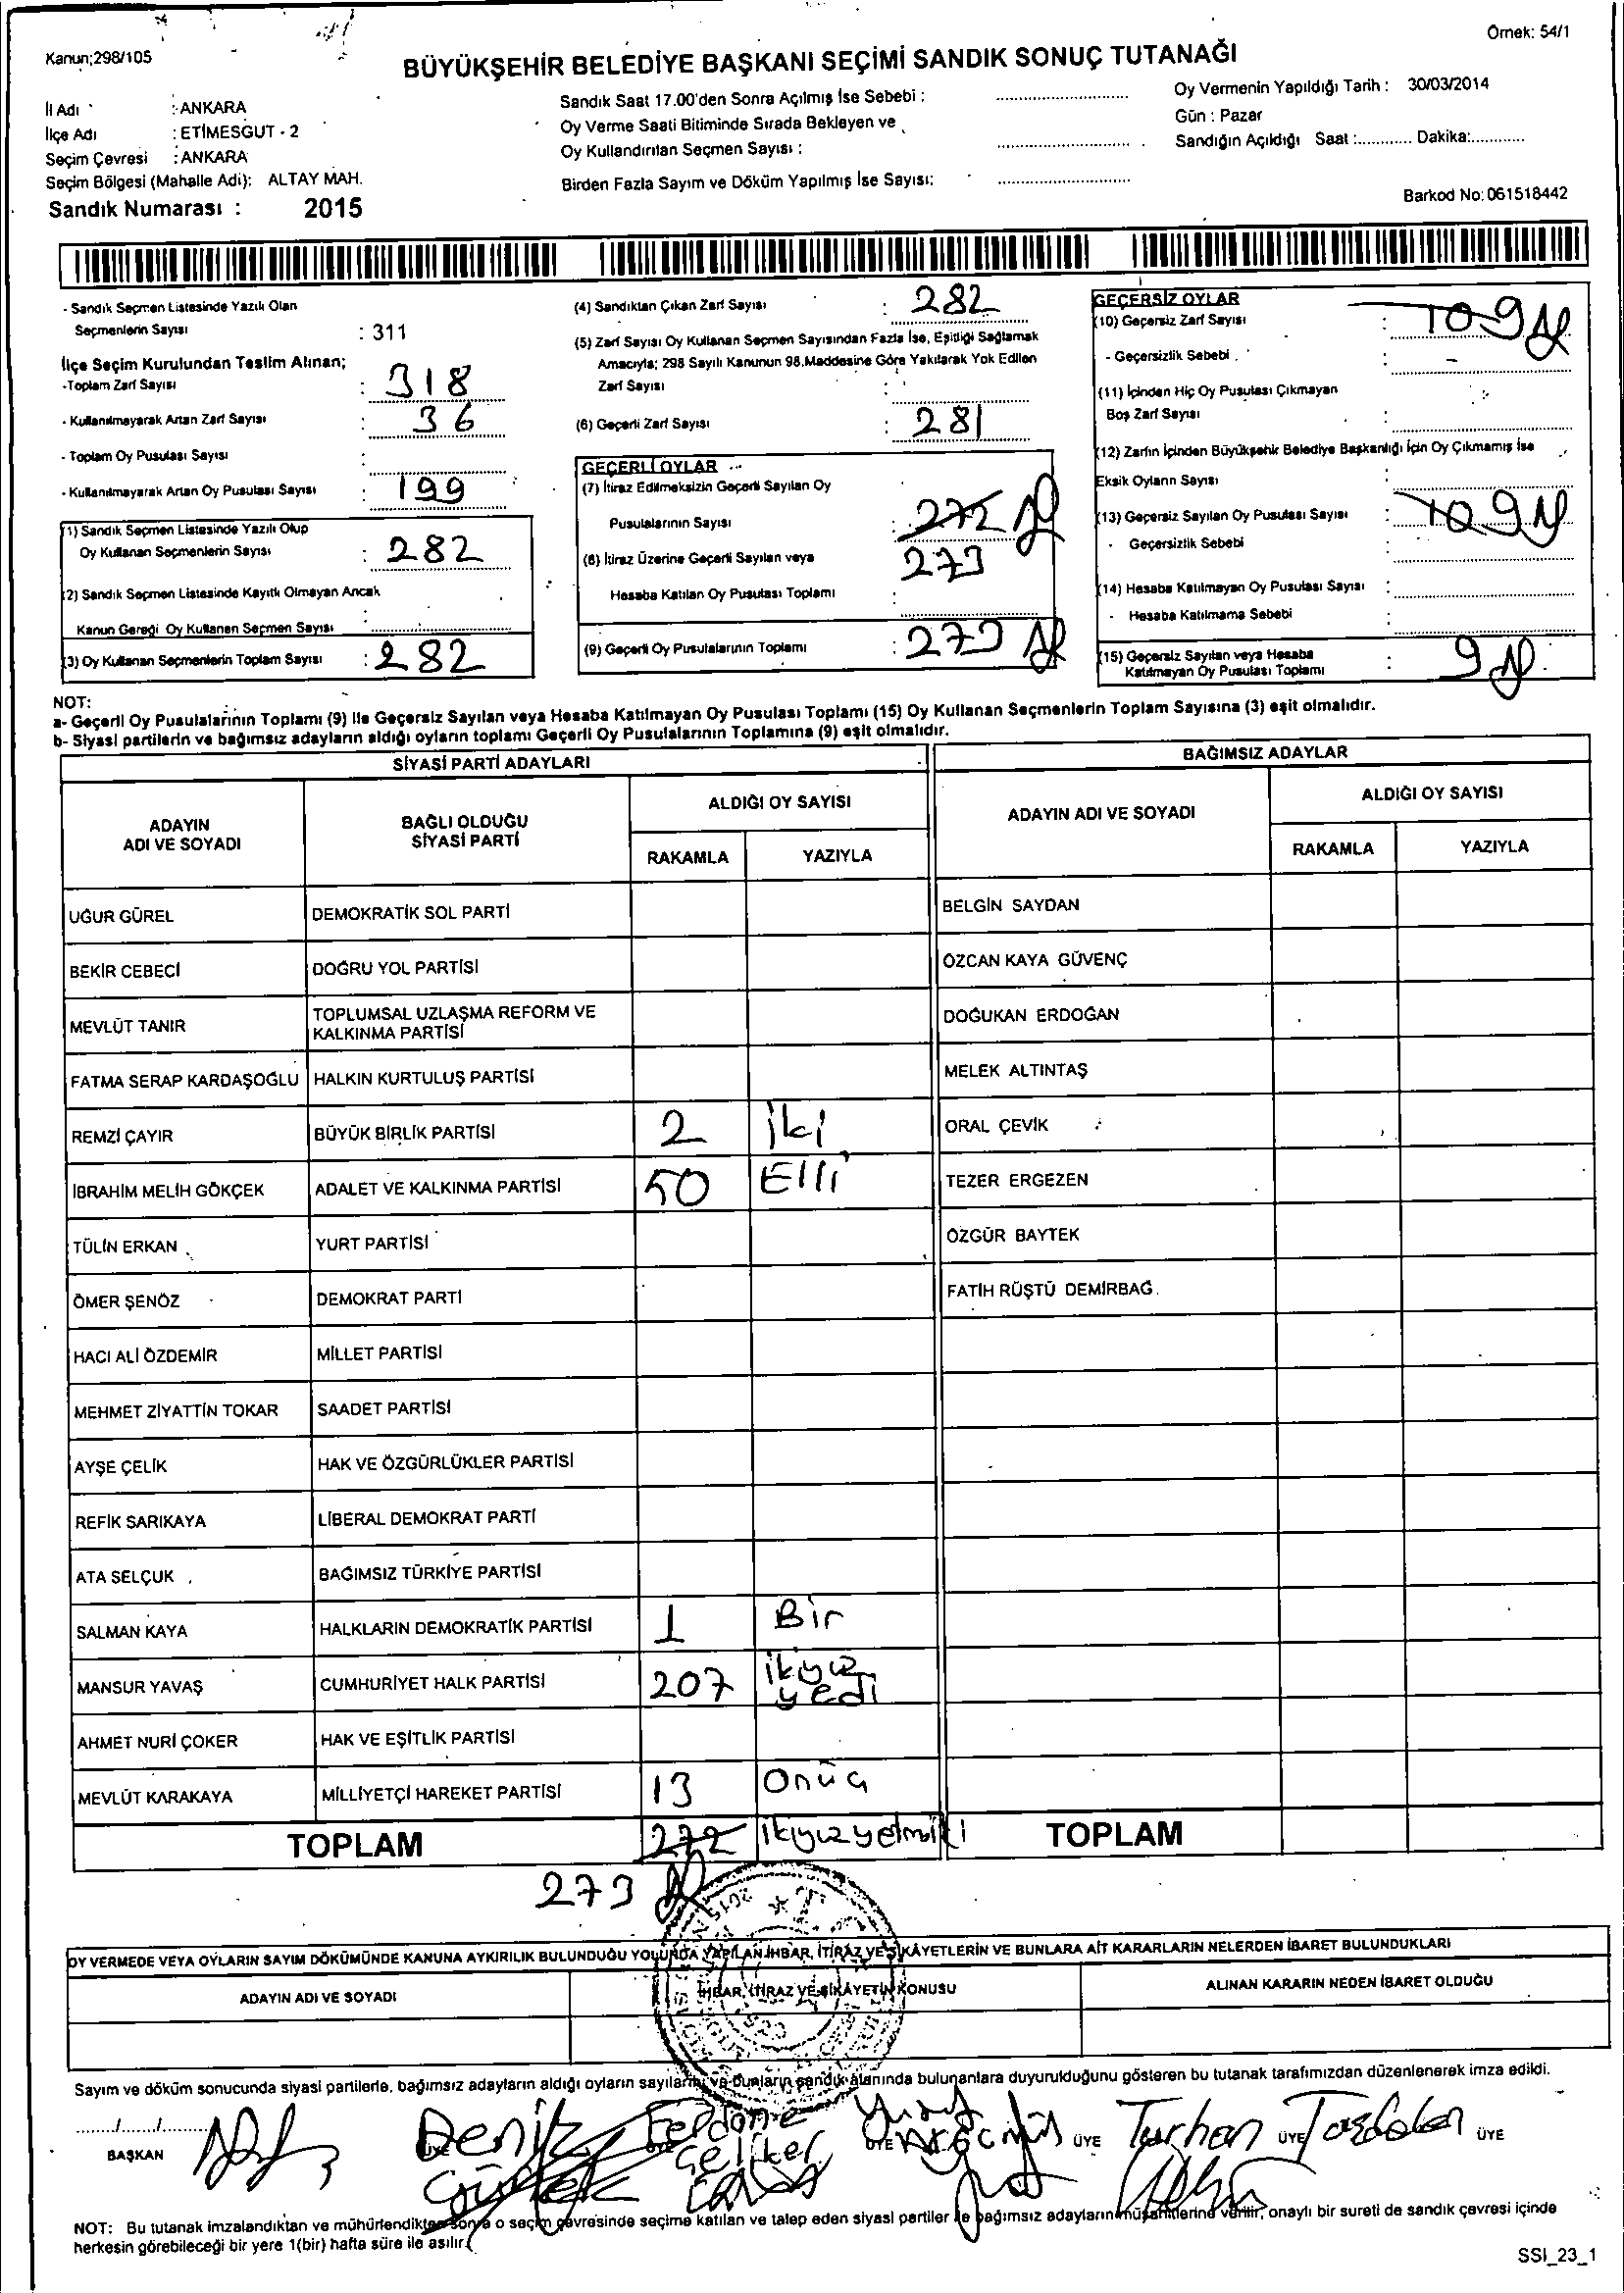 Örnek: 54/1
Kanun;298/105
BÜYÜKŞEHİR BELEDİYE BAŞKANI SEÇİMİ SANDIK SONUÇ TUTANAĞI
İl Adı : ANKARA
İlçe Adı : ETİMESGUT - 2
Seçim Çevresi : ANKARA
Seçim Bölgesi (Mahalle Adı): ALTAY MAH.
Sandık Numarası : 2015
Sandık Saat 17.00'den Sonra Açılmış İse Sebebi :
Oy Verme Saati Bitiminde Sırada Bekleyen ve
Oy Kullandırılan Seçmen Sayısı :
Birden Fazla Sayım ve Döküm Yapılmış İse Sayısı:
Oy Vermenin Yapıldığı Tarih : 30/03/2014
Gün : Pazar
Sandığın Açıldığı Saat :............ Dakika:............
Barkod No: 061518442
- Sandık Seçmen Listesinde Yazılı Olan
Seçmenlerin Sayısı : 311
İlçe Seçim Kurulundan Teslim Alınan;
-Toplam Zarf Sayısı : 318
- Kullanılmayarak Artan Zarf Sayısı : 36
- Toplam Oy Pusulası Sayısı :
- Kullanılmayarak Artan Oy Pusulası Sayısı : 199
(1) Sandık Seçmen Listesinde Yazılı Olup
Oy Kullanan Seçmenlerin Sayısı : 282
(2) Sandık Seçmen Listesinde Kayıtlı Olmayan Ancak
Kanun Gereği Oy Kullanan Seçmen Sayısı :
(3) Oy Kullanan Seçmenlerin Toplam Sayısı : 282
(4) Sandıktan Çıkan Zarf Sayısı : 282
(5) Zarf Sayısı Oy Kullanan Seçmen Sayısından Fazla İse, Eşitliği Sağlamak
Amacıyla; 298 Sayılı Kanunun 98.Maddesine Göre Yakılarak Yok Edilen
Zarf Sayısı :
(6) Geçerli Zarf Sayısı : 281
GEÇERLİ OYLAR
(7) İtiraz Edilmeksizin Geçerli Sayılan Oy
Pusulalarının Sayısı : 272
273
(8) İtiraz Üzerine Geçerli Sayılan veya
Hesaba Katılan Oy Pusulası Toplamı :
(9) Geçerli Oy Pusulalarının Toplamı : 273
GEÇERSİZ OYLAR
(10) Geçersiz Zarf Sayısı : 10 9
- Geçersizlik Sebebi :
(11) İçinden Hiç Oy Pusulası Çıkmayan
Boş Zarf Sayısı :
(12) Zarfın İçinden Büyükşehir Belediye Başkanlığı İçin Oy Çıkmamış İse
Eksik Oyların Sayısı :
(13) Geçersiz Sayılan Oy Pusulası Sayısı : 10 9
- Geçersizlik Sebebi :
(14) Hesaba Katılmayan Oy Pusulası Sayısı :
- Hesaba Katılmama Sebebi :
(15) Geçersiz Sayılan veya Hesaba
Katılmayan Oy Pusulası Toplamı : 9
NOT:
a- Geçerli Oy Pusulalarının Toplamı (9) İle Geçersiz Sayılan veya Hesaba Katılmayan Oy Pusulası Toplamı (15) Oy Kullanan Seçmenlerin Toplam Sayısına (3) eşit olmalıdır.
b- Siyasi partilerin ve bağımsız adayların aldığı oyların toplamı Geçerli Oy Pusulalarının Toplamına (9) eşit olmalıdır.
SİYASİ PARTİ ADAYLARI
BAĞIMSIZ ADAYLAR
ADAYIN
ADI VE SOYADI
BAĞLI OLDUĞU
SİYASİ PARTİ
ALDIĞI OY SAYISI
RAKAMLA YAZIYLA
ADAYIN ADI VE SOYADI
ALDIĞI OY SAYISI
RAKAMLA YAZIYLA
UĞUR GÜREL DEMOKRATİK SOL PARTİ
BELGİN SAYDAN
BEKİR CEBECİ DOĞRU YOL PARTİSİ
ÖZCAN KAYA GÜVENÇ
MEVLÜT TANIR TOPLUMSAL UZLAŞMA REFORM VE
KALKINMA PARTİSİ
DOĞUKAN ERDOĞAN
FATMA SERAP KARDAŞOĞLU HALKIN KURTULUŞ PARTİSİ
MELEK ALTINTAŞ
REMZİ ÇAYIR BÜYÜK BİRLİK PARTİSİ 2 iki
ORAL ÇEVİK
İBRAHİM MELİH GÖKÇEK ADALET VE KALKINMA PARTİSİ 50 Elli
TEZER ERGEZEN
TÜLİN ERKAN YURT PARTİSİ
ÖZGÜR BAYTEK
ÖMER ŞENÖZ DEMOKRAT PARTİ
FATİH RÜŞTÜ DEMİRBAĞ
HACI ALİ ÖZDEMİR MİLLET PARTİSİ
MEHMET ZİYATTİN TOKAR SAADET PARTİSİ
AYŞE ÇELİK HAK VE ÖZGÜRLÜKLER PARTİSİ
REFİK SARIKAYA LİBERAL DEMOKRAT PARTİ
ATA SELÇUK BAĞIMSIZ TÜRKİYE PARTİSİ
SALMAN KAYA HALKLARIN DEMOKRATİK PARTİSİ 1 Bir
MANSUR YAVAŞ CUMHURİYET HALK PARTİSİ 207 ikiyüz
yedi
AHMET NURİ ÇOKER HAK VE EŞİTLİK PARTİSİ
MEVLÜT KARAKAYA MİLLİYETÇİ HAREKET PARTİSİ 13 Onüç
TOPLAM 272
TOPLAM
273
OY VERMEDE VEYA OYLARIN SAYIM DÖKÜMÜNDE KANUNA AYKIRILIK BULUNDUĞU YOLUNDA YAPILAN İHBAR, İTİRAZ VE ŞİKAYETLERİN VE BUNLARA AİT KARARLARIN NELERDEN İBARET BULUNDUKLARI
ADAYIN ADI VE SOYADI
İHBAR, İTİRAZ VE ŞİKAYETİN KONUSU
ALINAN KARARIN NEDEN İBARET OLDUĞU
Sayım ve döküm sonucunda siyasi partilerle, bağımsız adayların aldığı oyların sayılarını ve bunların sandık alanında bulunanlara duyurulduğunu gösteren bu tutanak tarafımızdan düzenlenerek imza edildi.
....../....../......
BAŞKAN
Deniz
Turhan
ÜYE ÜYE ÜYE ÜYE
NOT: Bu tutanak imzalandıktan ve mühürlendikten sonra o seçim çevresinde seçime katılan ve talep eden siyasi partiler ile bağımsız adayların müşahitlerine verilir, onaylı bir sureti de sandık çevresi içinde
herkesin görebileceği bir yere 1(bir) hafta süre ile asılır.
SSI_23_1